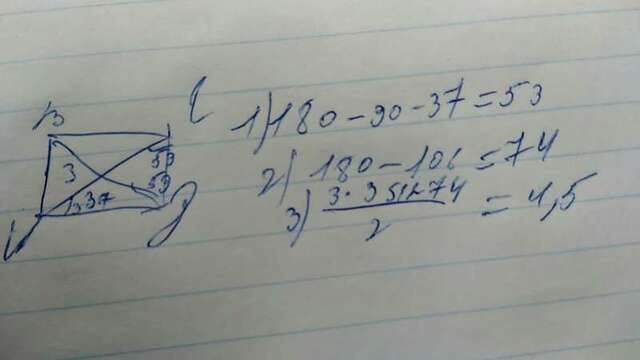 B
C
1) 180 - 90 - 37 = 53
3
53
53
37
2) 180 - 106 = 74
3) 3 · 3 sin 74 / 2 = 4,5